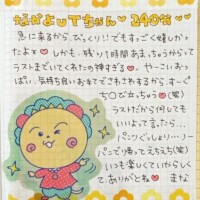 なかよしTちゃん♡240分♡
急に来るから、びっくり!!でもすっごく嬉しかっ
たよ♡しかも、残り1時間あまっちゃうからって
ラストまでいてくれたの神すぎる♡。やーこいお
っぱい、気持ち良いお手てでさわされるから、すーぐ
ち〇び立っちゃう(笑)
ラストだから何しても
いいよって言ったら...
パンツぐっしょり...ノー
パンで帰ってえちえち(笑)
いつも楽しくていやらしく
てありがとね♡ まな